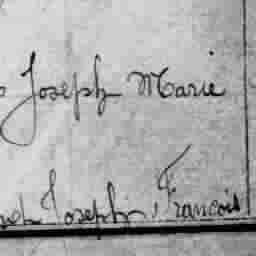 Joseph Marie
Joseph, François